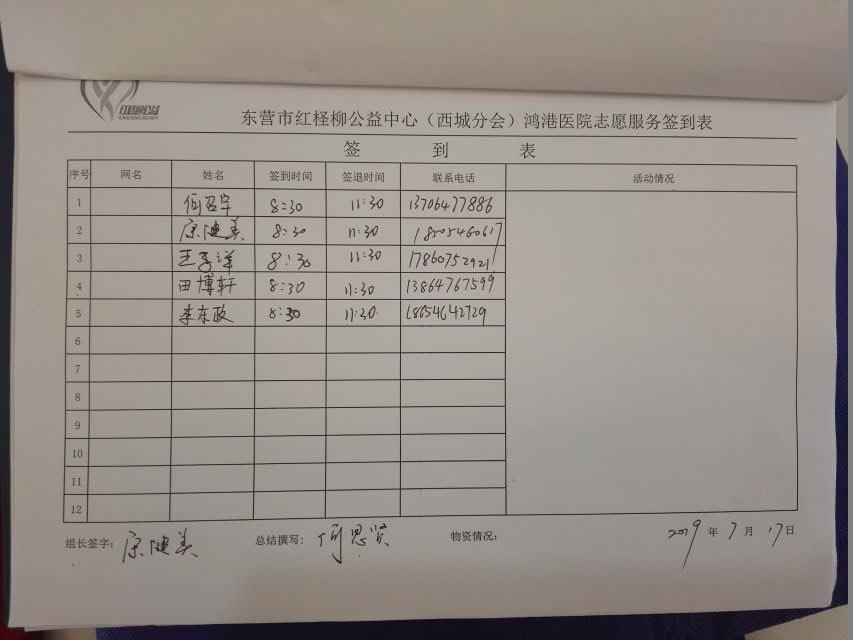 红柽柳公益
东营市红柽柳公益中心（西城分会）鸿港医院志愿服务签到表
签 到 表
序号 网名 姓名 签到时间 签退时间 联系电话 活动情况
1 何召宇 8:30 11:30 13706477886
2 康健美 8:30 11:30 18505460617
3 王子洋 8:30 11:30 17860752921
4 田博轩 8:30 11:30 13864767599
5 李东政 8:30 11:30 18654642729
6
7
8
9
10
11
12
组长签字： 康健美 总结撰写： 何思贤 物资情况： 2019 年 7 月 17 日